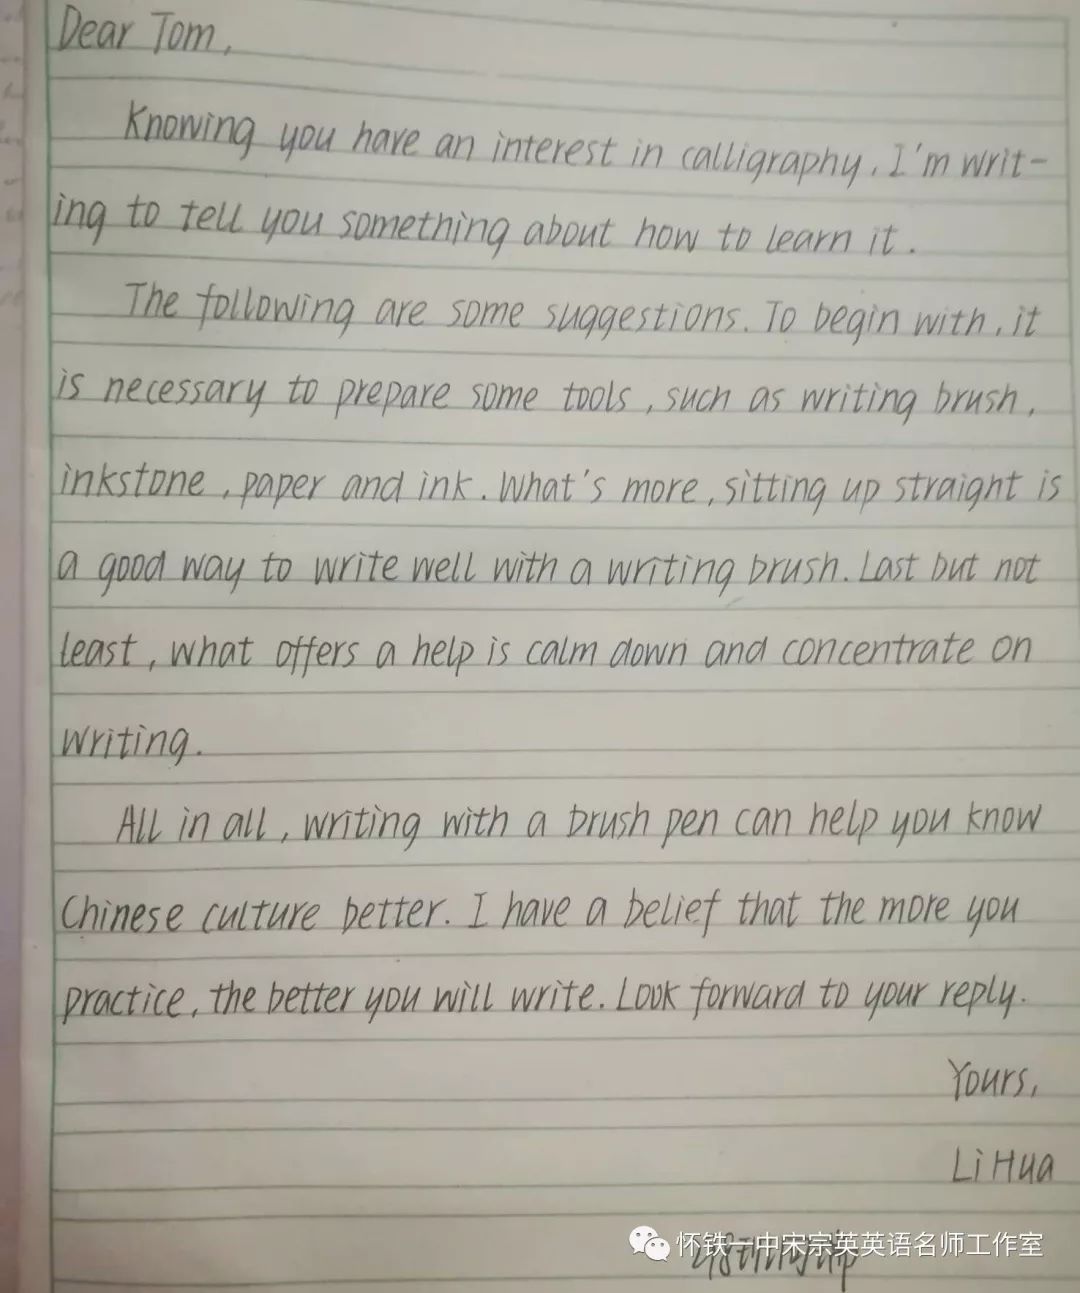 Dear Tom,
Knowing you have an interest in calligraphy, I'm writ-
ing to tell you something about how to learn it.
The following are some suggestions. To begin with, it
is necessary to prepare some tools, such as writing brush,
inkstone, paper and ink. What's more, sitting up straight is
a good way to write well with a writing brush. Last but not
least, what offers a help is calm down and concentrate on
writing.
All in all, writing with a brush pen can help you know
Chinese culture better. I have a belief that the more you
practice, the better you will write. Look forward to your reply.
Yours,
Li Hua
怀铁一中宋宗英英语名师工作室